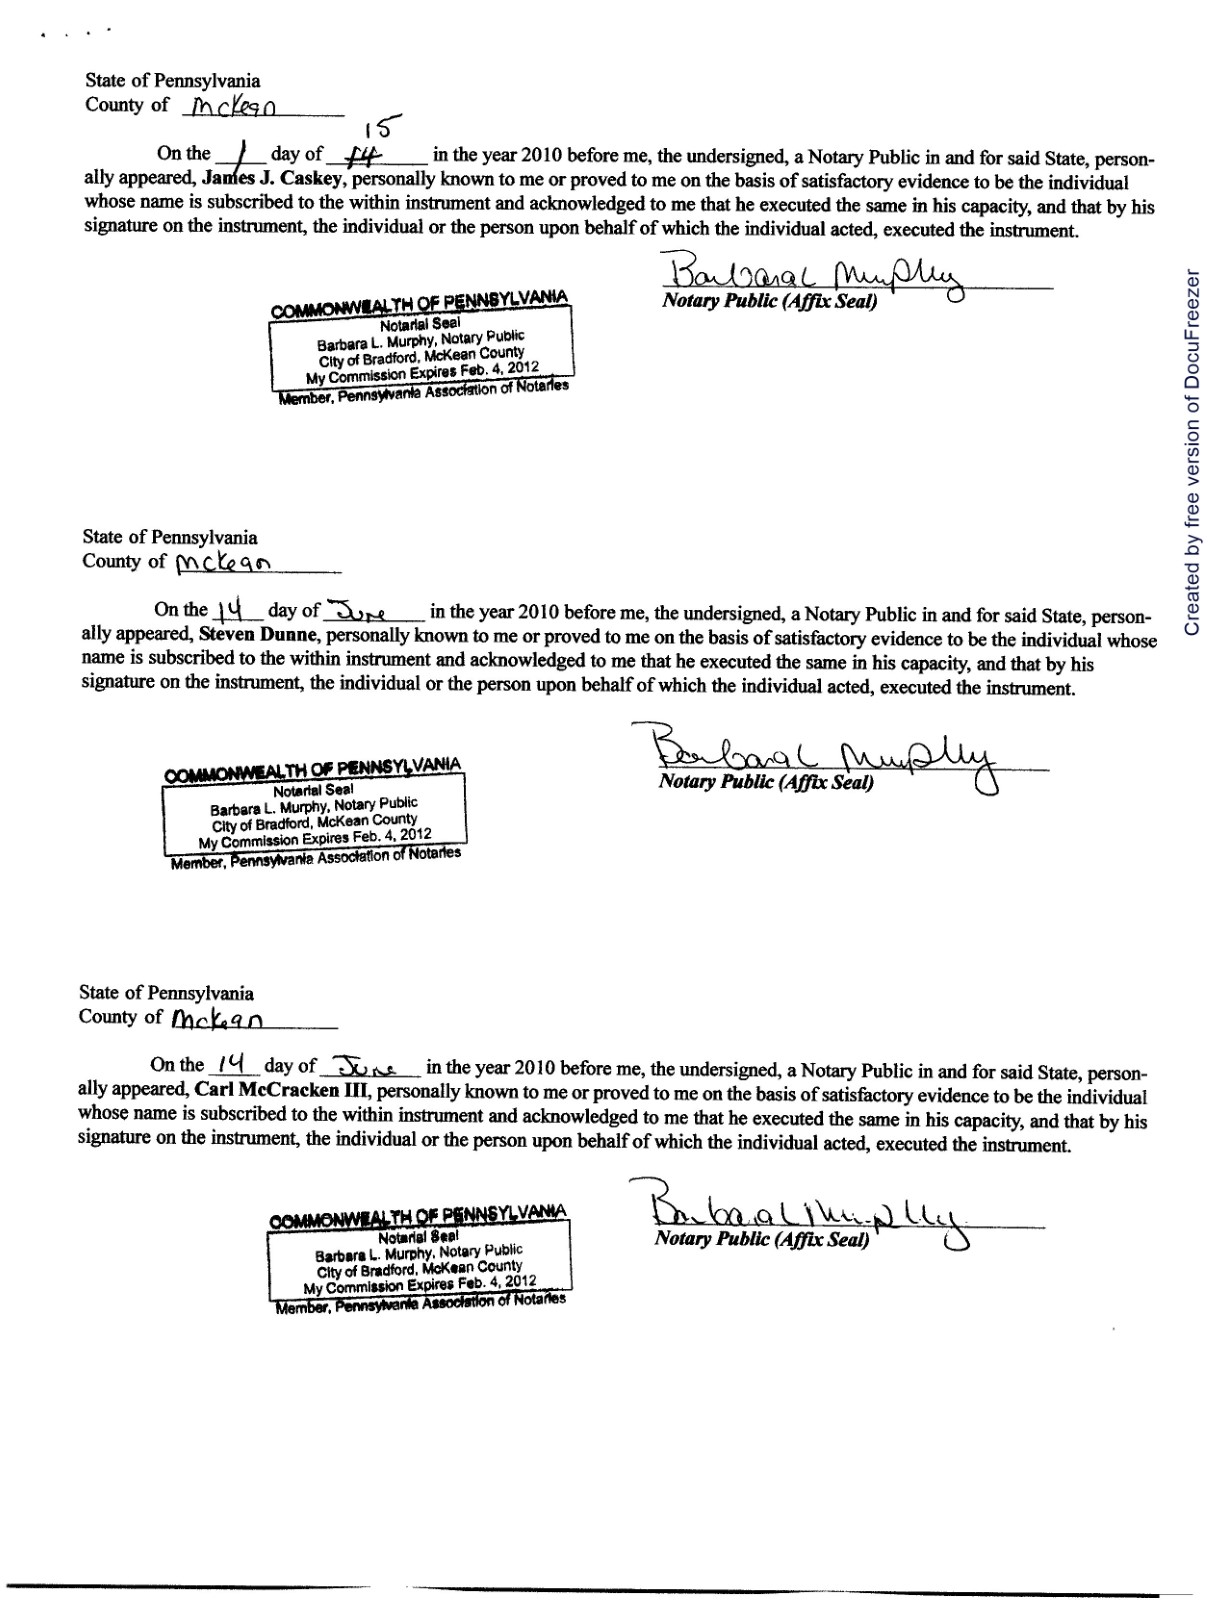 State of Pennsylvania
County of McKean
15
On the 1 day of 14 in the year 2010 before me, the undersigned, a Notary Public in and for said State, person-
ally appeared, James J. Caskey, personally known to me or proved to me on the basis of satisfactory evidence to be the individual
whose name is subscribed to the within instrument and acknowledged to me that he executed the same in his capacity, and that by his
signature on the instrument, the individual or the person upon behalf of which the individual acted, executed the instrument.
Barbara L Murphy
Notary Public (Affix Seal)
COMMONWEALTH OF PENNSYLVANIA
Notarial Seal
Barbara L. Murphy, Notary Public
City of Bradford, McKean County
My Commission Expires Feb. 4, 2012
Member, Pennsylvania Association of Notaries
State of Pennsylvania
County of McKean
On the 14 day of June in the year 2010 before me, the undersigned, a Notary Public in and for said State, person-
ally appeared, Steven Dunne, personally known to me or proved to me on the basis of satisfactory evidence to be the individual whose
name is subscribed to the within instrument and acknowledged to me that he executed the same in his capacity, and that by his
signature on the instrument, the individual or the person upon behalf of which the individual acted, executed the instrument.
Barbara L Murphy
Notary Public (Affix Seal)
COMMONWEALTH OF PENNSYLVANIA
Notarial Seal
Barbara L. Murphy, Notary Public
City of Bradford, McKean County
My Commission Expires Feb. 4, 2012
Member, Pennsylvania Association of Notaries
State of Pennsylvania
County of McKean
On the 14 day of June in the year 2010 before me, the undersigned, a Notary Public in and for said State, person-
ally appeared, Carl McCracken III, personally known to me or proved to me on the basis of satisfactory evidence to be the individual
whose name is subscribed to the within instrument and acknowledged to me that he executed the same in his capacity, and that by his
signature on the instrument, the individual or the person upon behalf of which the individual acted, executed the instrument.
Barbara L Murphy
Notary Public (Affix Seal)
COMMONWEALTH OF PENNSYLVANIA
Notarial Seal
Barbara L. Murphy, Notary Public
City of Bradford, McKean County
My Commission Expires Feb. 4, 2012
Member, Pennsylvania Association of Notaries
Created by free version of DocuFreezer